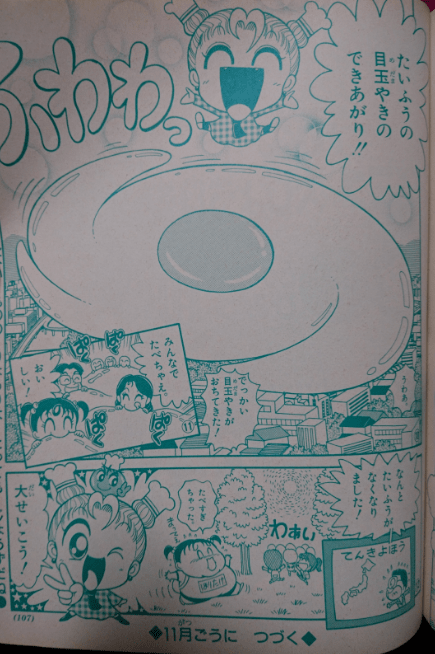 たいふうの
目玉やきの
できあがり!!
ふわわっ
うわあ。
でっかい
目玉やきが
おちてきた!
みんなで
たべちゃえ。
ぱく
ぱく
おい
しい!
ぱく
ぱく
なんと
たいふうが
なくなり
ました!
てんきよほう
わあい
たべすぎ
ちゃった。
大せいこう!
(107)
◆11月ごうに つづく◆